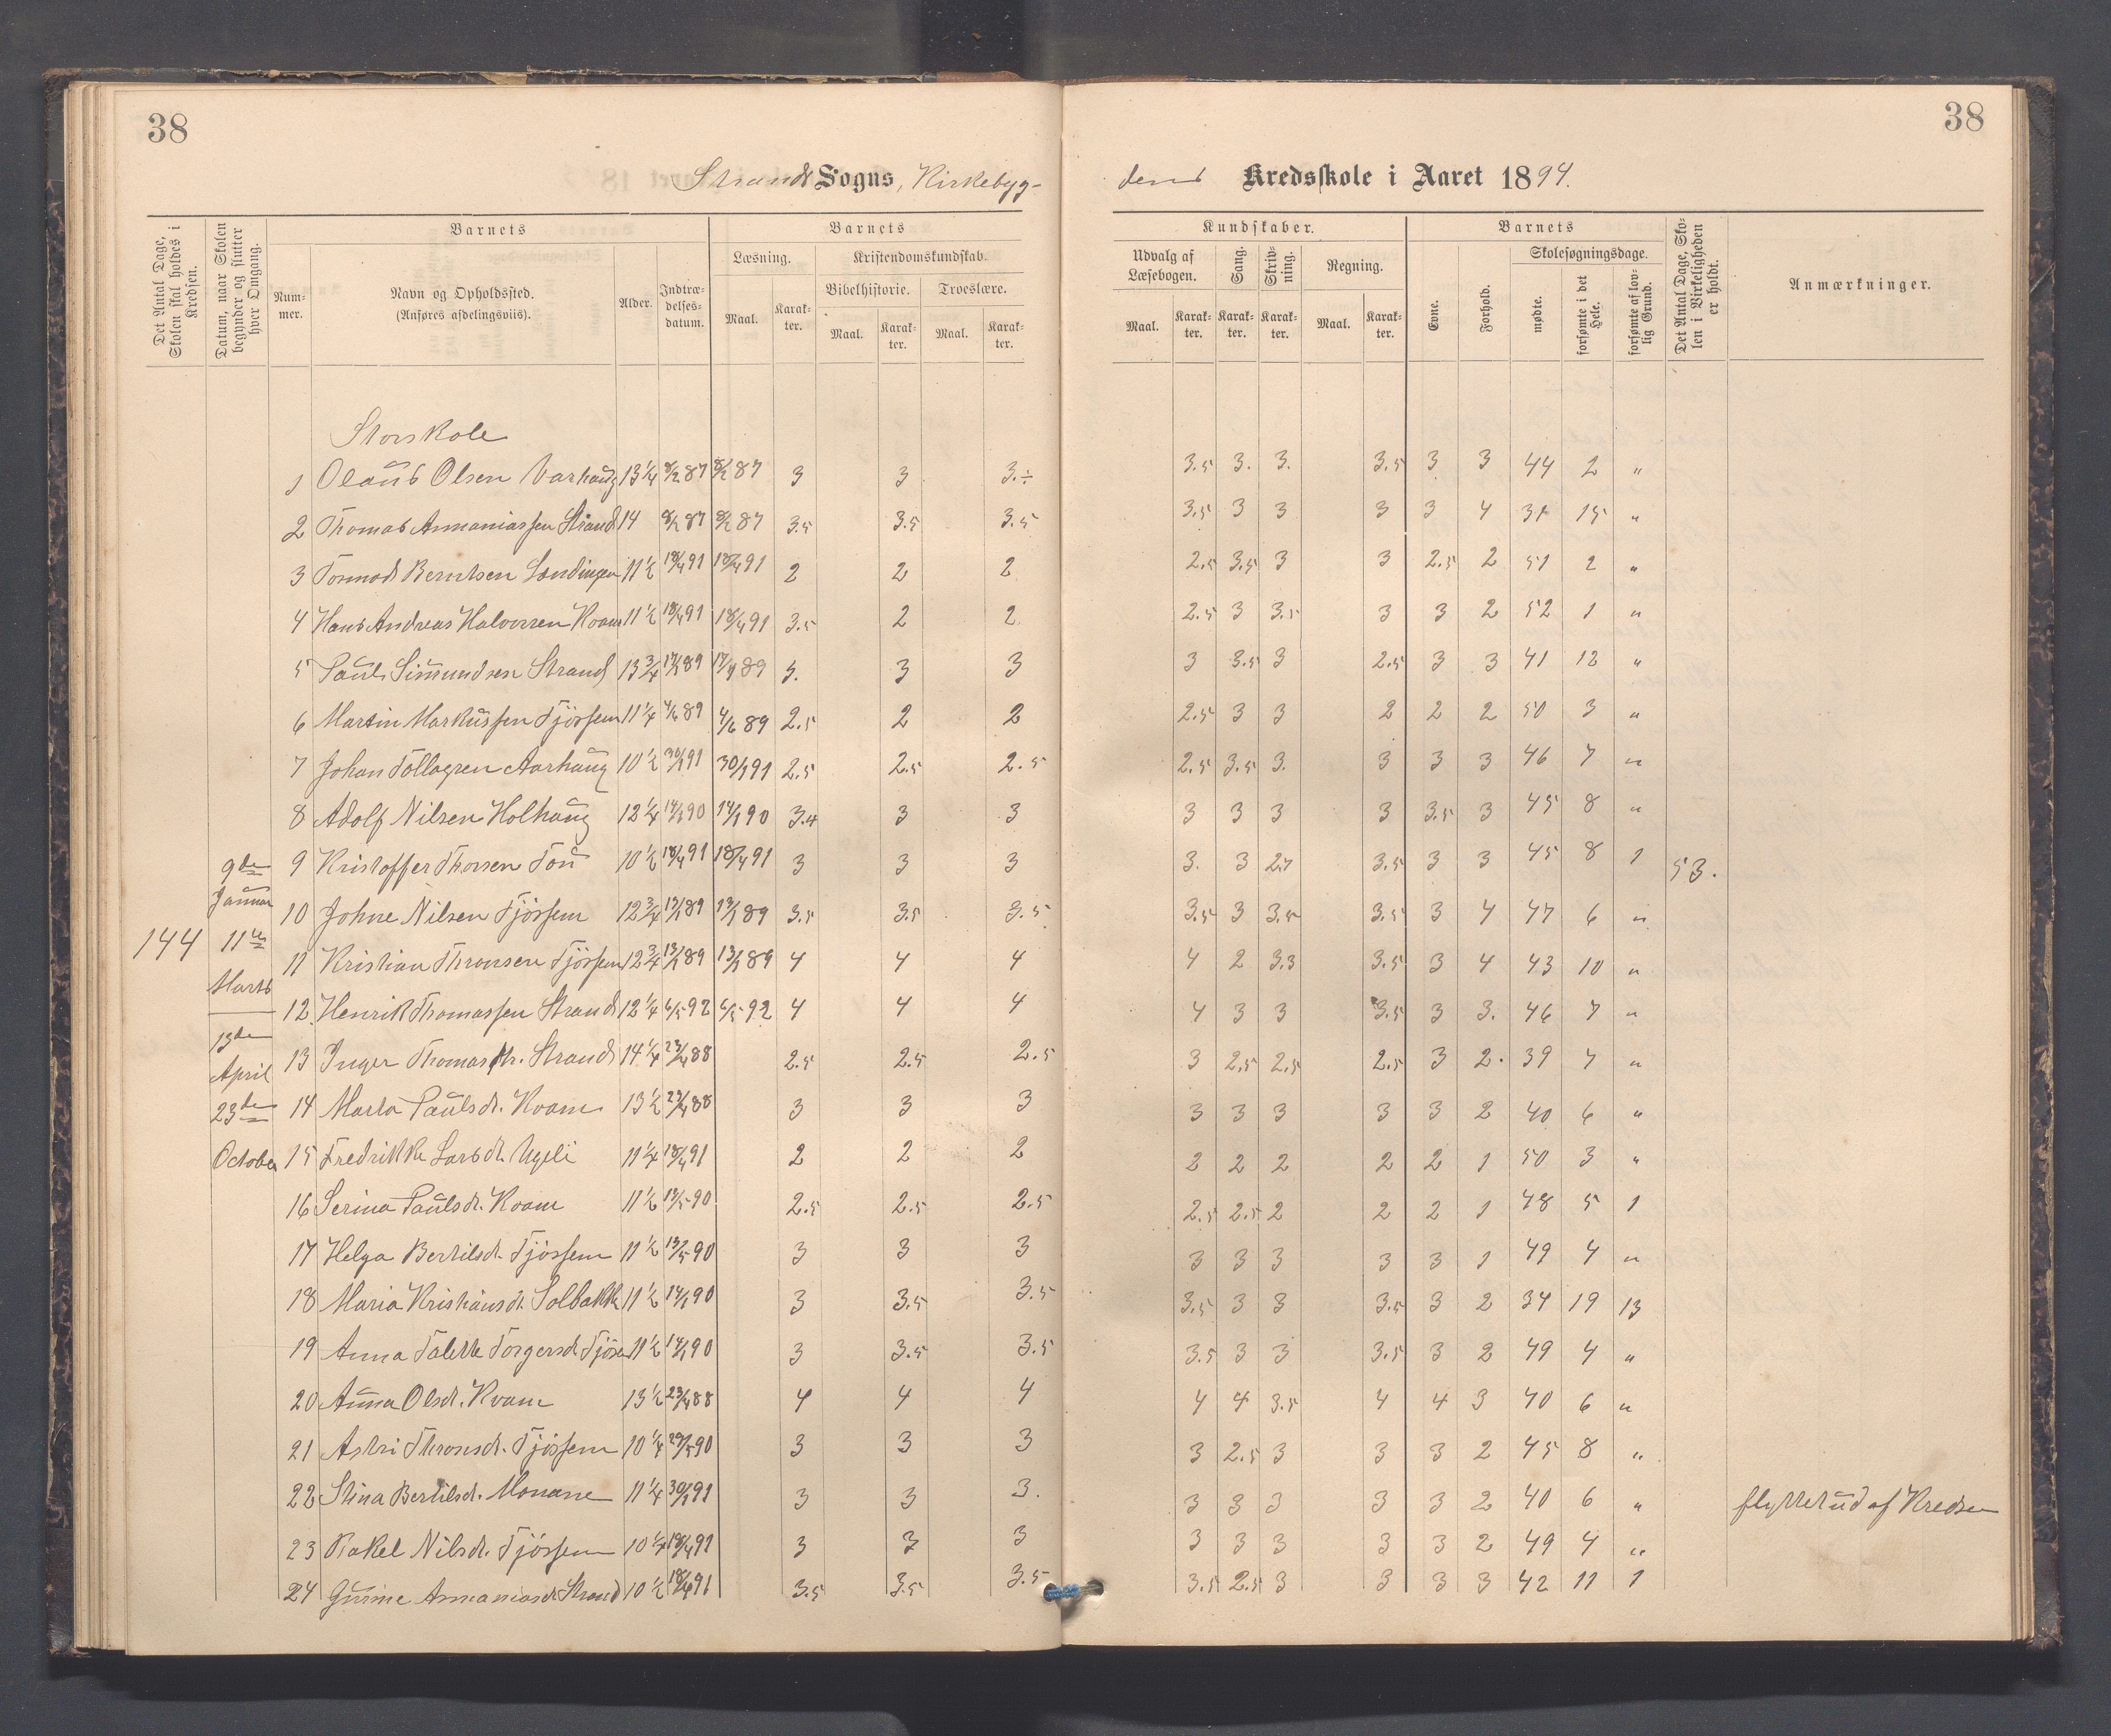 38
38
Strands Sogns, Kirkebyg-
dens Kredsskole i Aaret 1894.
Det Antal Dage, Skolen skal holdes i Kredsen.
Datum, naar Skolen begynder og slutter hver Omgang.
Barnets
Num-mer.
Navn og Opholdssted.
(Anføres afdelingsviis).
Alder.
Indtræ-delses-datum.
Barnets
Læsning.
Kristendomskundskab.
Bibelhistorie.
Troeslære.
Maal.
Karak-ter.
Maal.
Karak-ter.
Maal.
Karak-ter.
Kundskaber.
Udvalg af Læsebogen.
Sang.
Skriv-ning.
Regning.
Maal.
Karak-ter.
Karak-ter.
Karak-ter.
Maal.
Karak-ter.
Barnets
Evne.
Forhold.
Skolesøgningsdage.
mødte.
forsømte i det Hele.
forsømte af lov-lig Grund.
Det Antal Dage, Sko-len i Virkeligheden er holdt.
Anmærkninger.
Storskole
1 Olaus Olsen Varhaug 13 1/4 8/2 87 8/2 87 3 3 3.÷ 3.5 3. 3. 3.5 3 3 44 2 "
2 Thomas Annaniassen Strand 14 8/2 87 8/2 87 3.5 3.5 3.5 3.5 3 3 3 3 4 31 15 "
3 Tormod Berntsen Lændingen 11 1/2 18/4 91 18/4 91 2 2 2 2.5 3.5 3 3 2.5 2 51 2 "
4 Hans Andreas Halvorsen Kvam 11 1/2 18/4 91 18/4 91 3.5 2 2 2.5 3 3.5 3 3 2 52 1 "
5 Paul Simundsen Strand 13 3/4 17/1 89 17/1 89 3. 3 3 3 3.5 3 2.5 3 3 41 12 "
6 Martin Markussen Tjössem 11 1/4 4/6 89 4/6 89 2.5 2 2 2.5 3 3 2 2 2 50 3 "
7 Johan Tollagsen Aarhaug 10 1/2 30/1 91 30/1 91 2.5 2.5 2.5 2.5 3.5 3. 3 3 3 46 7 "
8 Adolf Nilsen Holhaug 12 1/4 14/1 90 14/1 90 3.4 3 3 3 3 3 3 3.5 3 45 8 "
9 Kristoffer Thorsen Tou 10 1/2 18/4 91 18/4 91 3 3 3 3. 3 2.7 3.5 3 3 45 8 1
10 Johne Nilsen Tjössem 12 3/4 17/1 89 17/1 89 3.5 3.5 3.5 3.5 3 3.5 3.5 3 4 47 6 "
11 Kristian Thronsen Tjössem 12 3/4 13/1 89 13/1 89 4 4 4 4 2 3.3 3.5 3 4 43 10 "
12 Henrik Thomassen Strand 12 1/4 6/5 92 6/5 92 4 4 4 4 3 3 3.5 3 3. 46 7 "
13 Inger Thomasdtr. Strand 14 1/4 23/4 88 2.5 2.5 2.5 3 2.5 2.5 2.5 3 2. 39 7 "
14 Marta Paulsdt. Kvam 13 1/2 23/4 88 3 3 3 3 3 3 3 3 2 40 6 "
15 Fredrikke Larsdt. Ugeli 11 1/4 18/4 91 2 2 2 2 2 2 2 2 1 50 3 "
16 Serina Paulsdt. Kvam 11 1/2 13/5 90 2.5 2.5 2.5 2.5 2.5 2 2 2 1 48 5 1
17 Helga Bertilsdt. Tjössem 11 1/2 13/5 90 3 3 3 3 3 3 3 3 1 49 4 "
18 Maria Kristiansdt. Solbakk 11 1/2 14/1 90 3 3.5 3.5 3.5 3 3 3.5 3 2 34 19 13
19 Anna Talette Torgersdt. Tjössem 11 1/2 14/1 90 3 3.5 3.5 3.5 3 3 3.5 3 2 49 4 "
20 Anna Olsdt. Kvam 13 1/2 23/4 88 4 4 4 4 4 3.5 4 4 3 40 6 "
21 Astri Thronsdt. Tjössem 10 1/4 29/5 90 3 3 3 3 2.5 3 3 3 2 45 8 "
22 Stina Bertilsdt. Monane 11 1/4 30/1 91 3 3 3. 3 3 3 3 3 2 40 6 " flyttet ud af Kredsen
23 Rakel Nilsdt. Tjössem 10 1/4 18/4 91 3 3 3 3 3 3 3 3 2 49 4 "
24 Gurine Annaniasdt. Strand 10 1/2 18/4 91 3.5 3.5 3.5 3.5 2.5 3 3 3 3 42 11 1
144
9de
Januar
11te
Marts
13de
April
23de
October
53.